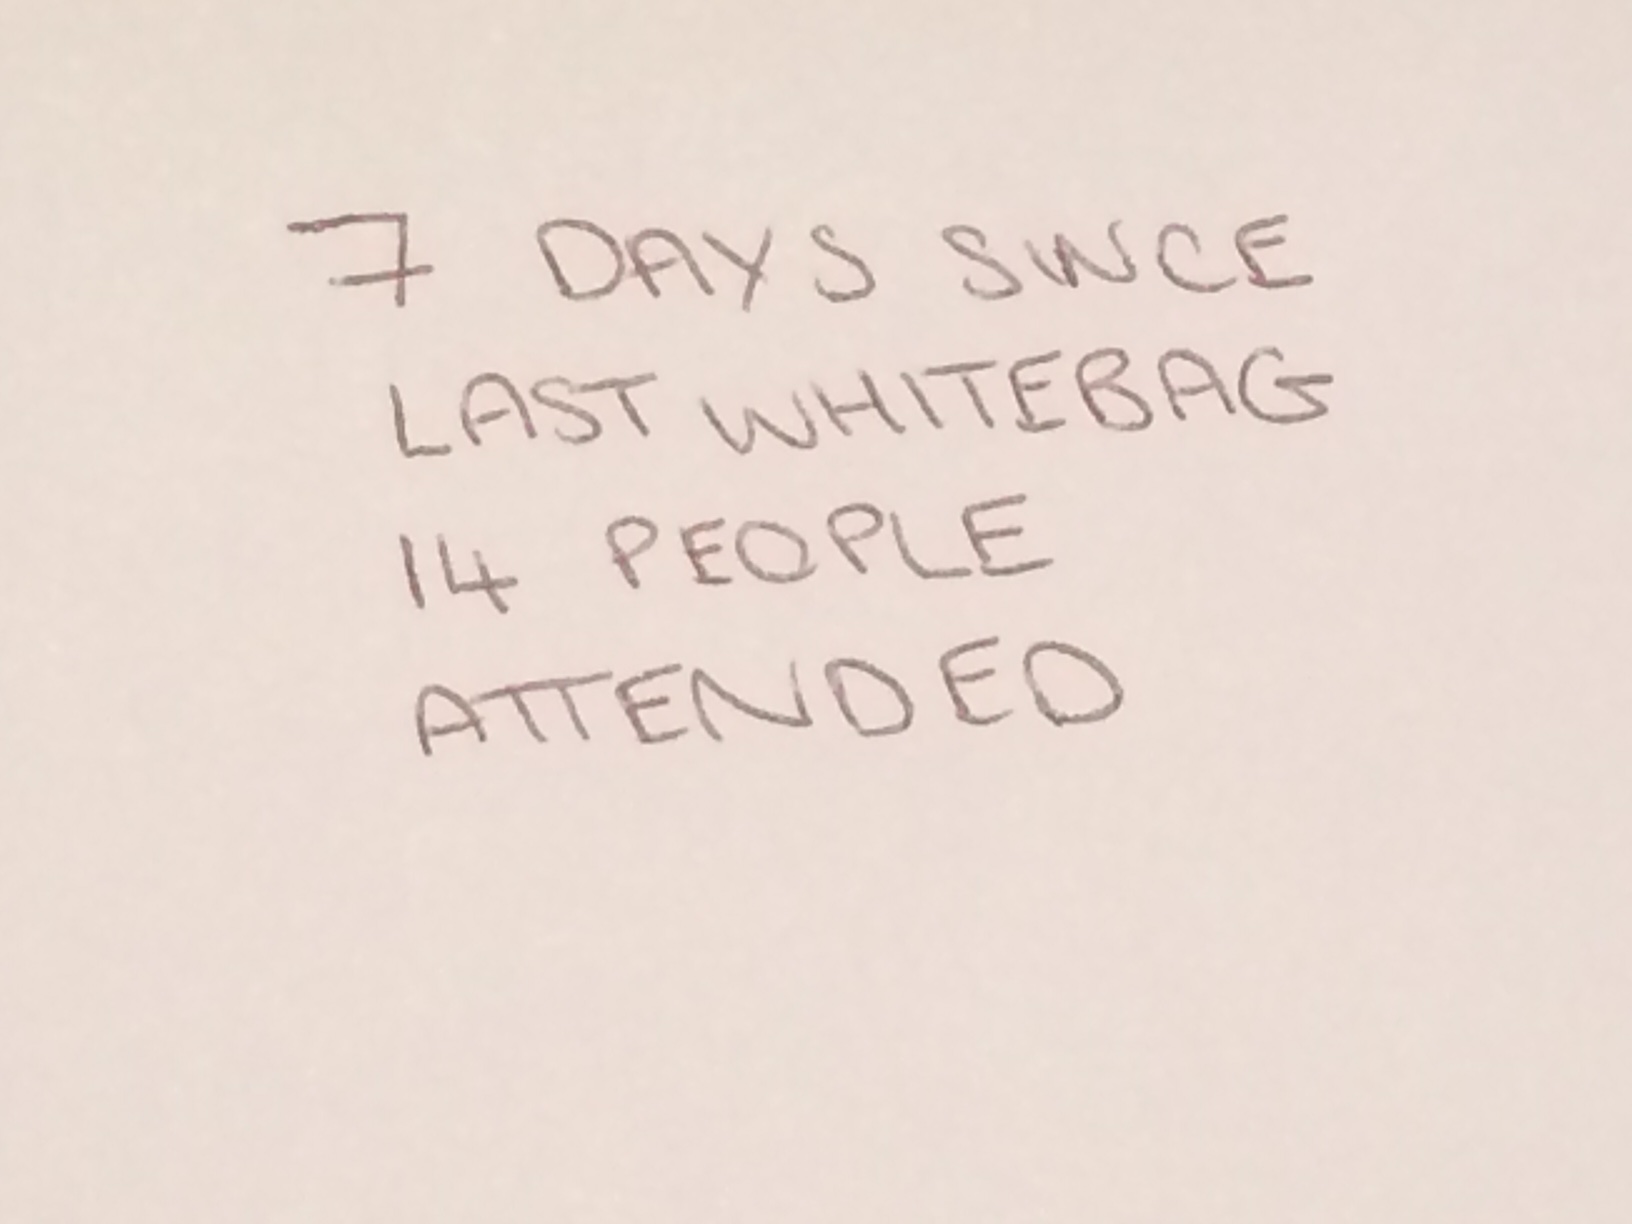 7 DAYS SINCE
LAST WHITEBAG
14 PEOPLE
ATTENDED